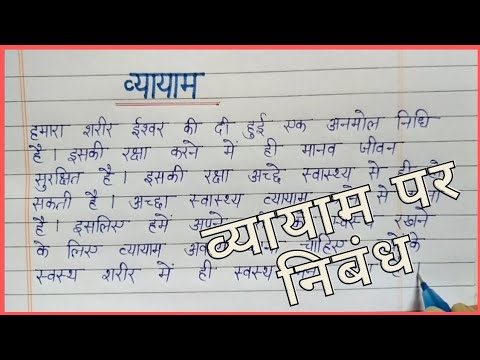 व्यायाम
हमारा शरीर ईश्वर की दी हुई एक अनमोल निधि
है। इसकी रक्षा करने में ही मानव जीवन
सुरक्षित है। इसकी रक्षा अच्छे स्वास्थ्य से
सकती है। अच्छा स्वास्थ्य व्यायाम से
है। इसलिए हमें अपने रखने
के लिए व्यायाम चाहिए
स्वस्थ शरीर में ही स्वस्थ
व्यायाम पर
निबंध